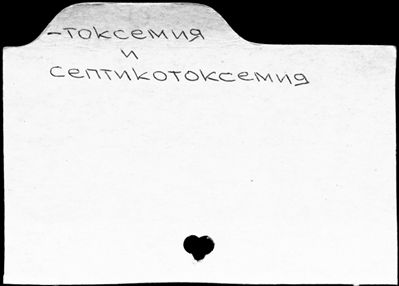 -токсемия
и
септикотоксемия